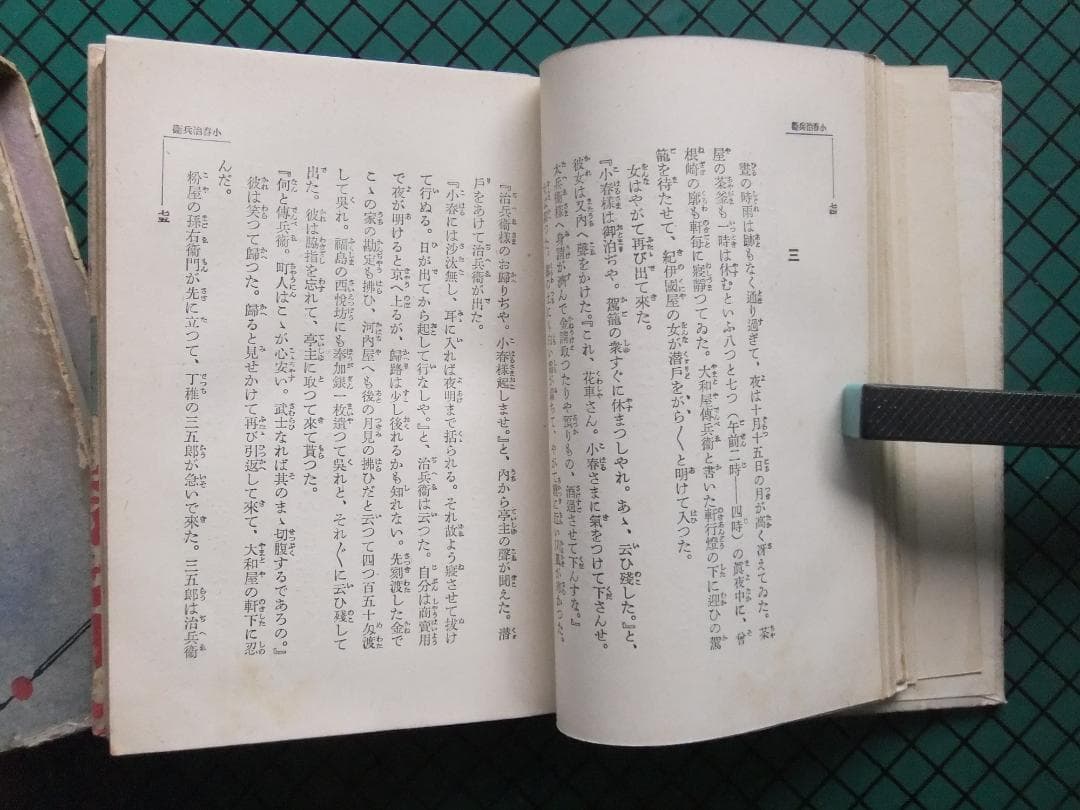 小春治兵衞
三
晝の時雨は跡もなく通り過ぎて、夜は十月十五日の月が高く冴えてゐた。茶
屋の茶釜も一時は休むといふ八つと七つ（午前二時――四時）の眞夜中に、曾
根崎の廓も軒毎に寢靜つてゐた。大和屋傳兵衞と書いた軒行燈の下に迎ひの駕
籠を待たせて、紀伊國屋の女が潜戸をがら〳〵と明けて入つた。
女はやがて再び出て來た。
『小春様は御泊ぢや。駕籠の衆すぐに休まつしやれ。あゝ、云ひ殘した。』と、
彼女は又内へ聲をかけた。『これ、花車さん。小春さまに氣をつけて下さんせ。
太兵衞様へ身請が濟んで金請取つたりや預りもの、酒過させて下んすな。』
小春治兵衞
『治兵衞様のお歸りぢや。小春様起しませ。』と、内から亭主の聲が聞えた。潜
戸をあけて治兵衞が出た。
『小春には沙汰無し、耳に入れば夜明まで括られる。それ故よう寢させて拔け
て行ぬる。日が出てから起して行なしや。』と、治兵衞は云つた。『自分は商賣用
で夜が明けると京へ上るが、歸路は少し後れるかも知れない。先刻渡した金で
こゝの家の勘定も拂ひ、河内屋へも後の月見の拂ひだと云つて四つ百五十匁渡
して吳れ。福島の西悅坊にも奉加銀一枚遺つて吳れと、それ〴〵に云ひ殘して
出た。彼は脇指を忘れて、亭主に取つて來て貰つた。
『何と傳兵衞。町人はこゝが心安い。武士なれば其のまゝ切腹するであろの。』
彼は笑つて歸つた。歸ると見せかけて再び引返して來て、大和屋の軒下に忍
んだ。
粉屋の孫右衞門が先に立つて、丁稚の三五郎が急いで來た。三五郎は治兵衞